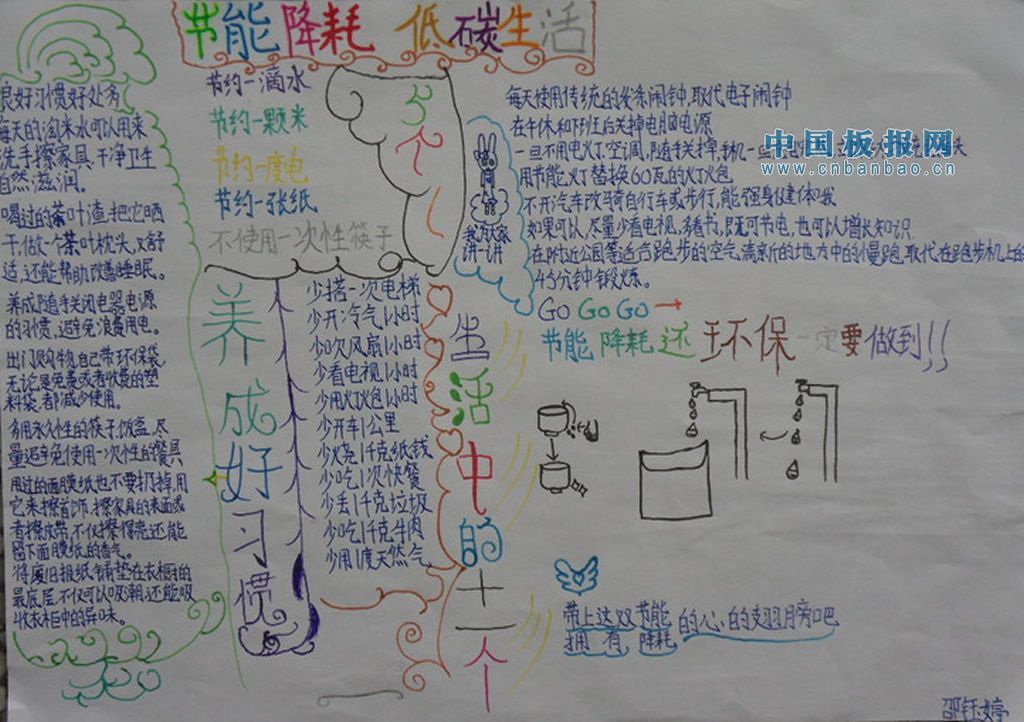 节能降耗 低碳生活
良好习惯好处多
每天的淘米水可以用来
洗手擦家具,干净卫生
自然滋润。
喝过的茶叶渣,把它晒
干,做个茶叶枕头,又舒
适,还能帮助改善睡眠。
养成随手关闭电器电源
的习惯,避免浪费用电。
出门购物,自己带环保袋,
无论是免费或者收费的塑
料袋,都减少使用。
多用永久性的筷子、饭盒,尽
量避免使用一次性的餐具
用过的面膜纸也不要扔掉,用
它来擦首饰、擦家具的表面或
者擦皮带,不仅擦得亮还能
留下面膜纸的香气。
将废旧报纸铺垫在衣橱的
最底层,不仅可以吸潮,还能吸
收衣柜中的异味。
节约一滴水
节约一颗米
节约一度电
节约一张纸
不使用一次性筷子
养成好习惯
少搭一次电梯
少开冷气1小时
少吹风扇1小时
少看电视1小时
少用灯包1小时
少开车1公里
少烧1千克纸钱
少吃1次快餐
少丢1千克垃圾
少吃1千克牛肉
少用1度天然气
生活中的十一个
我为大家
讲一讲
每天使用传统的发条闹钟,取代电子闹钟
在午休和下班后关掉电脑电源
一旦不用电灯、空调,随手关掉,手机一旦
用节能灯替换60瓦的灯包
不开汽车改骑自行车或步行,能强身健体哦
如果可以,尽量少看电视,多看书,既可节电,也可以增长知识
在附近公园等适合跑步的空气清新的地方中的慢跑,取代在跑步机上的
45分钟锻炼。
GO GO GO →
节能 降耗 还 环保 一定要做到!!
中国板报网
www.cnbanbao.cn
带上这双节能 的心的翅膀吧
拥有 降耗
邵钰婷